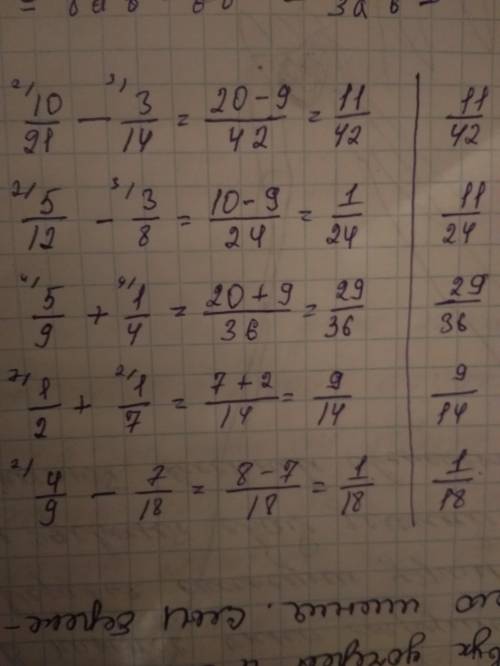 2) 10/21 - 3) 3/14 = (20-9)/42 = 11/42 | 11/42
2) 5/12 - 3) 3/8 = (10-9)/24 = 1/24 | 11/24
4) 5/9 + 9) 1/4 = (20+9)/36 = 29/36 | 29/36
7) 1/2 + 2) 1/7 = (7+2)/14 = 9/14 | 9/14
2) 4/9 - 7/18 = (8-7)/18 = 1/18 | 1/18